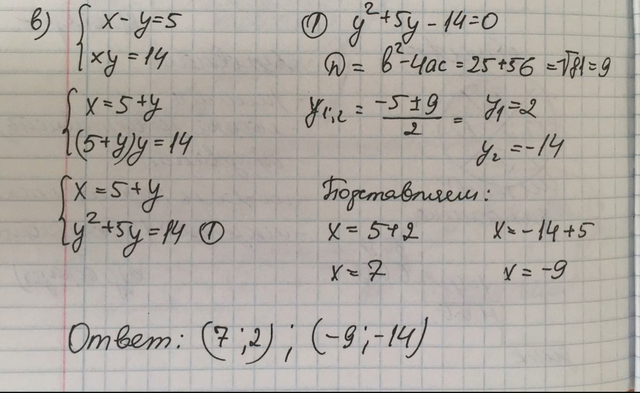 в) { x - y = 5
xy = 14
{ x = 5 + y
(5+y)y = 14
{ x = 5 + y
y² + 5y = 14 ①
① y² + 5y - 14 = 0
D = b² - 4ac = 25 + 56 = √81 = 9
y₁,₂ = (-5 ± 9)/2 = y₁ = 2
y₂ = -14
Подставляем:
x = 5 + 2 x = -14 + 5
x = 7 x = -9
Ответ: (7;2); (-9;-14)